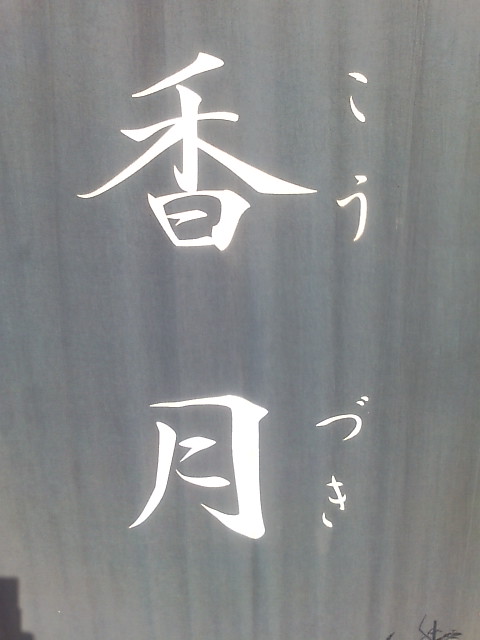 香月
こうづき